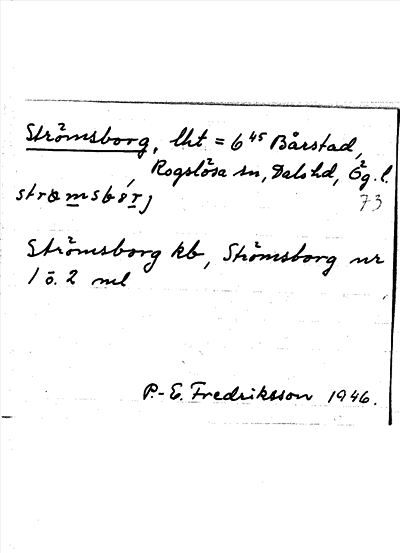 Strömsborg, lht = 6⁴⁵ Bårstad,
Rogslösa sn, Dals hd, Ög. l.
73
Strömsborg kb, Strömsborg nr
1 o. 2 ml
P.-E. Fredriksson 1946.